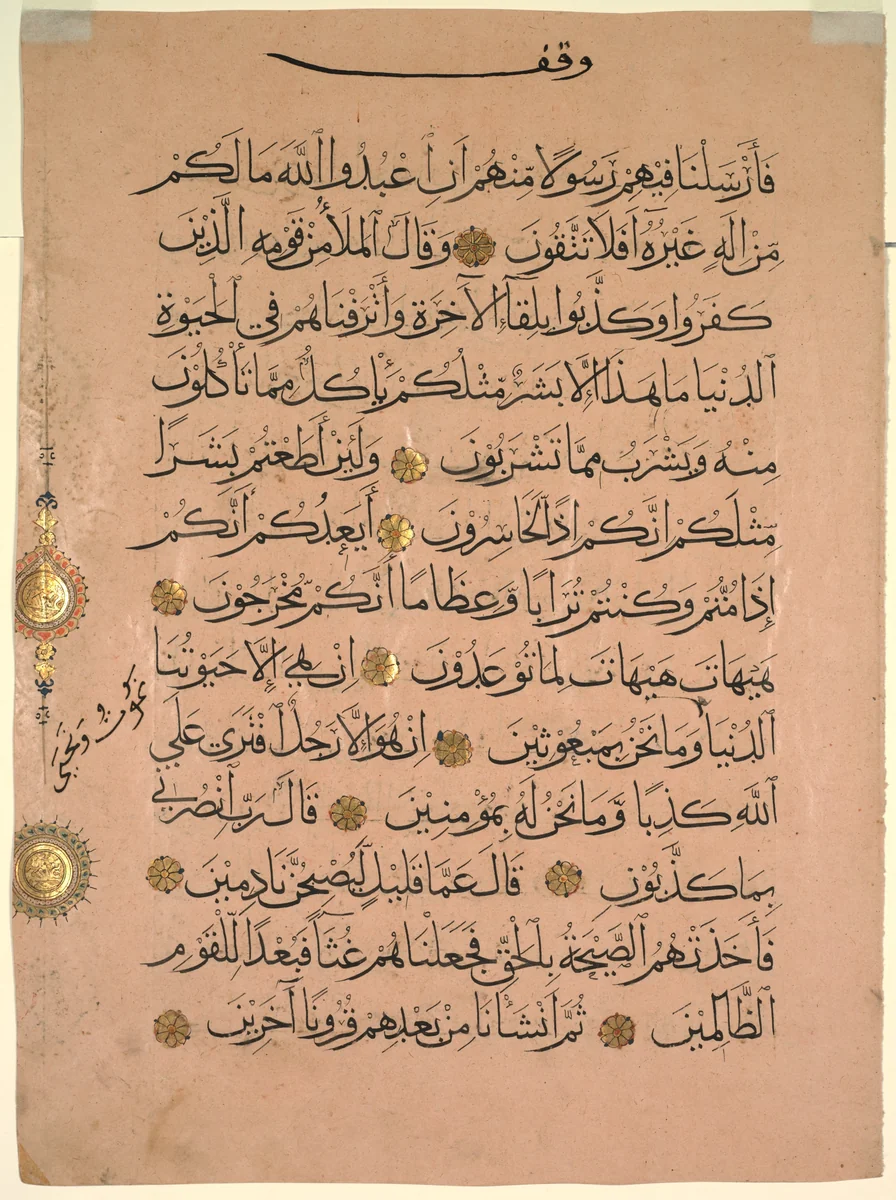 وقف
فَأَرْسَلْنَا فِيْهِمْ رَسُوْلًا مِّنْهُمْ اَنِ ٱعْبُدُوا ٱللّٰهَ مَا لَكُمْ
مِّنْ اِلٰهٍ غَيْرُهٗٓ اَفَلَا تَتَّقُوْنَ وَقَالَ ٱلْمَلَأُ مِنْ قَوْمِهِ الَّذِيْنَ
كَفَرُوا وَكَذَّبُوا بِلِقَآءِ الْآخِرَةِ وَأَتْرَفْنَاهُمْ فِي ٱلْحَيٰوةِ
ٱلدُّنْيَا مَا هَذَا اِلَّا بَشَرٌ مِّثْلُكُمْ يَأْكُلُ مِمَّا تَأْكُلُوْنَ
مِنْهُ وَيَشْرَبُ مِمَّا تَشْرَبُوْنَ وَلَئِنْ أَطَعْتُمْ بَشَرًا
مِّثْلَكُمْ اِنَّكُمْ اِذًا لَّخَاسِرُوْنَ أَيَعِدُكُمْ أَنَّكُمْ
إِذَا مُتُّمْ وَكُنْتُمْ تُرَابًا وَّعِظَامًا أَنَّكُمْ مُّخْرَجُوْنَ
هَيْهَاتَ هَيْهَاتَ لِمَا تُوْعَدُوْنَ اِنْ هِيَ إِلَّا حَيٰوتُنَا
ٱلدُّنْيَا وَمَا نَحْنُ بِمَبْعُوْثِيْنَ اِنْ هُوَ اِلَّا رَجُلٌ ٱفْتَرَى عَلَى
ٱللّٰهِ كَذِبًا وَّمَا نَحْنُ لَهُ بِمُؤْمِنِيْنَ قَالَ رَبِّ ٱنْصُرْنِي
بِمَا كَذَّبُوْنِ قَالَ عَمَّا قَلِيْلٍ لَّيُصْبِحُنَّ نَادِمِيْنَ
فَأَخَذَتْهُمُ ٱلصَّيْحَةُ بِٱلْحَقِّ فَجَعَلْنَاهُمْ غُثَآءً فَبُعْدًا لِّلْقَوْمِ
ٱلظَّالِمِيْنَ ثُمَّ أَنْشَأْنَا مِنْ بَعْدِهِمْ قُرُوْنًا آخَرِيْنَ
نموت ونحيى